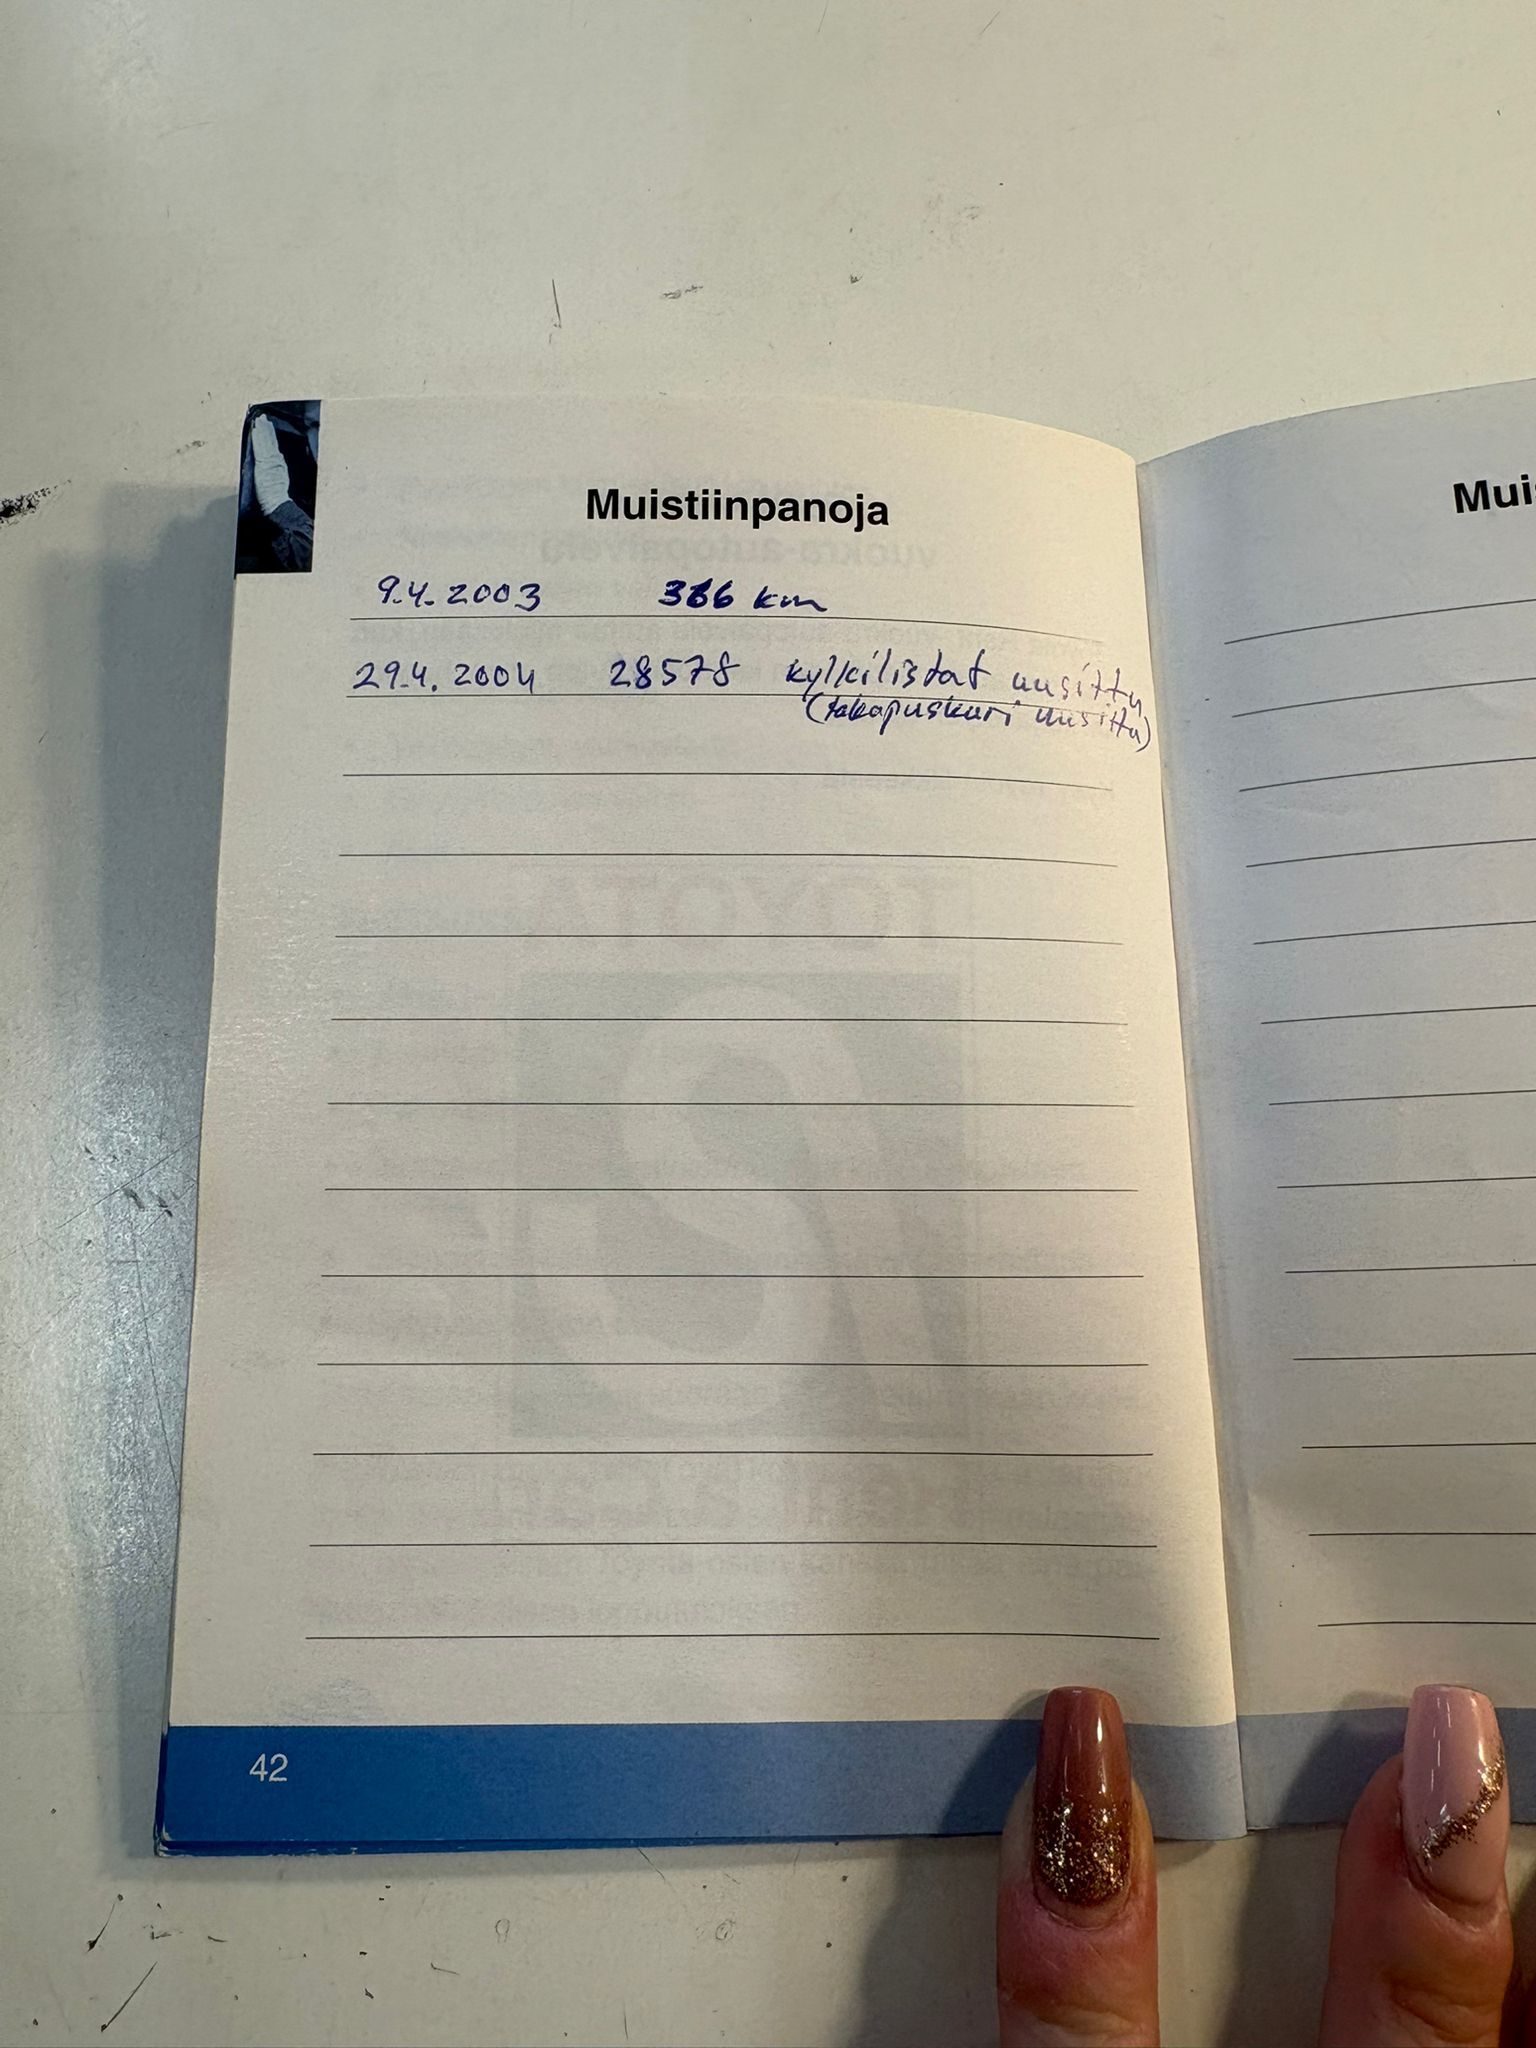 Muistiinpanoja
Muis
9.4.2003 366 km
29.4.2004 28578 kylkilistat uusittu
(takapuskuri uusittu)
42